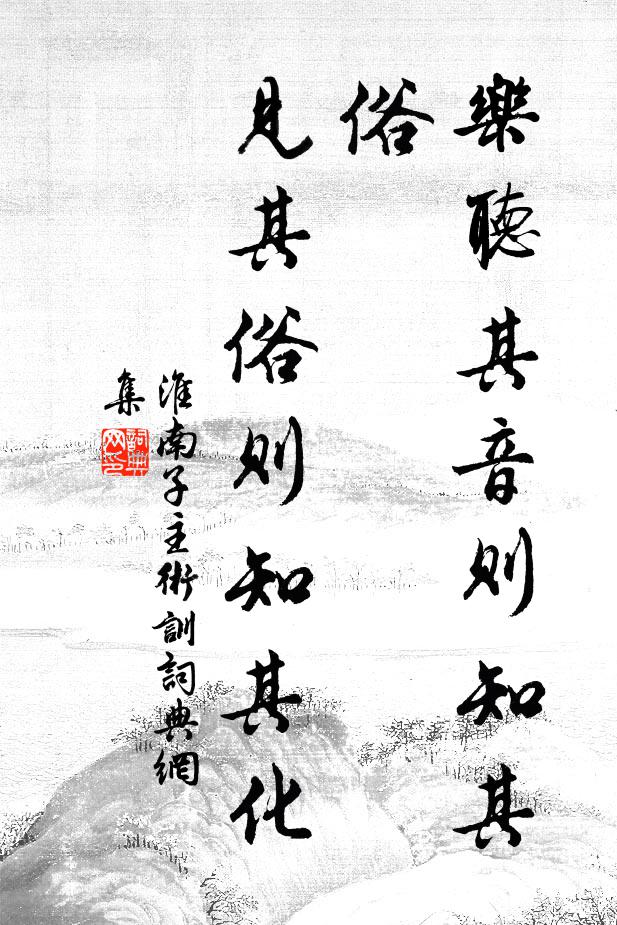 樂聽其音則知其
俗
見其俗則知其化
淮南子主術訓詞典網
集
詞典
网印